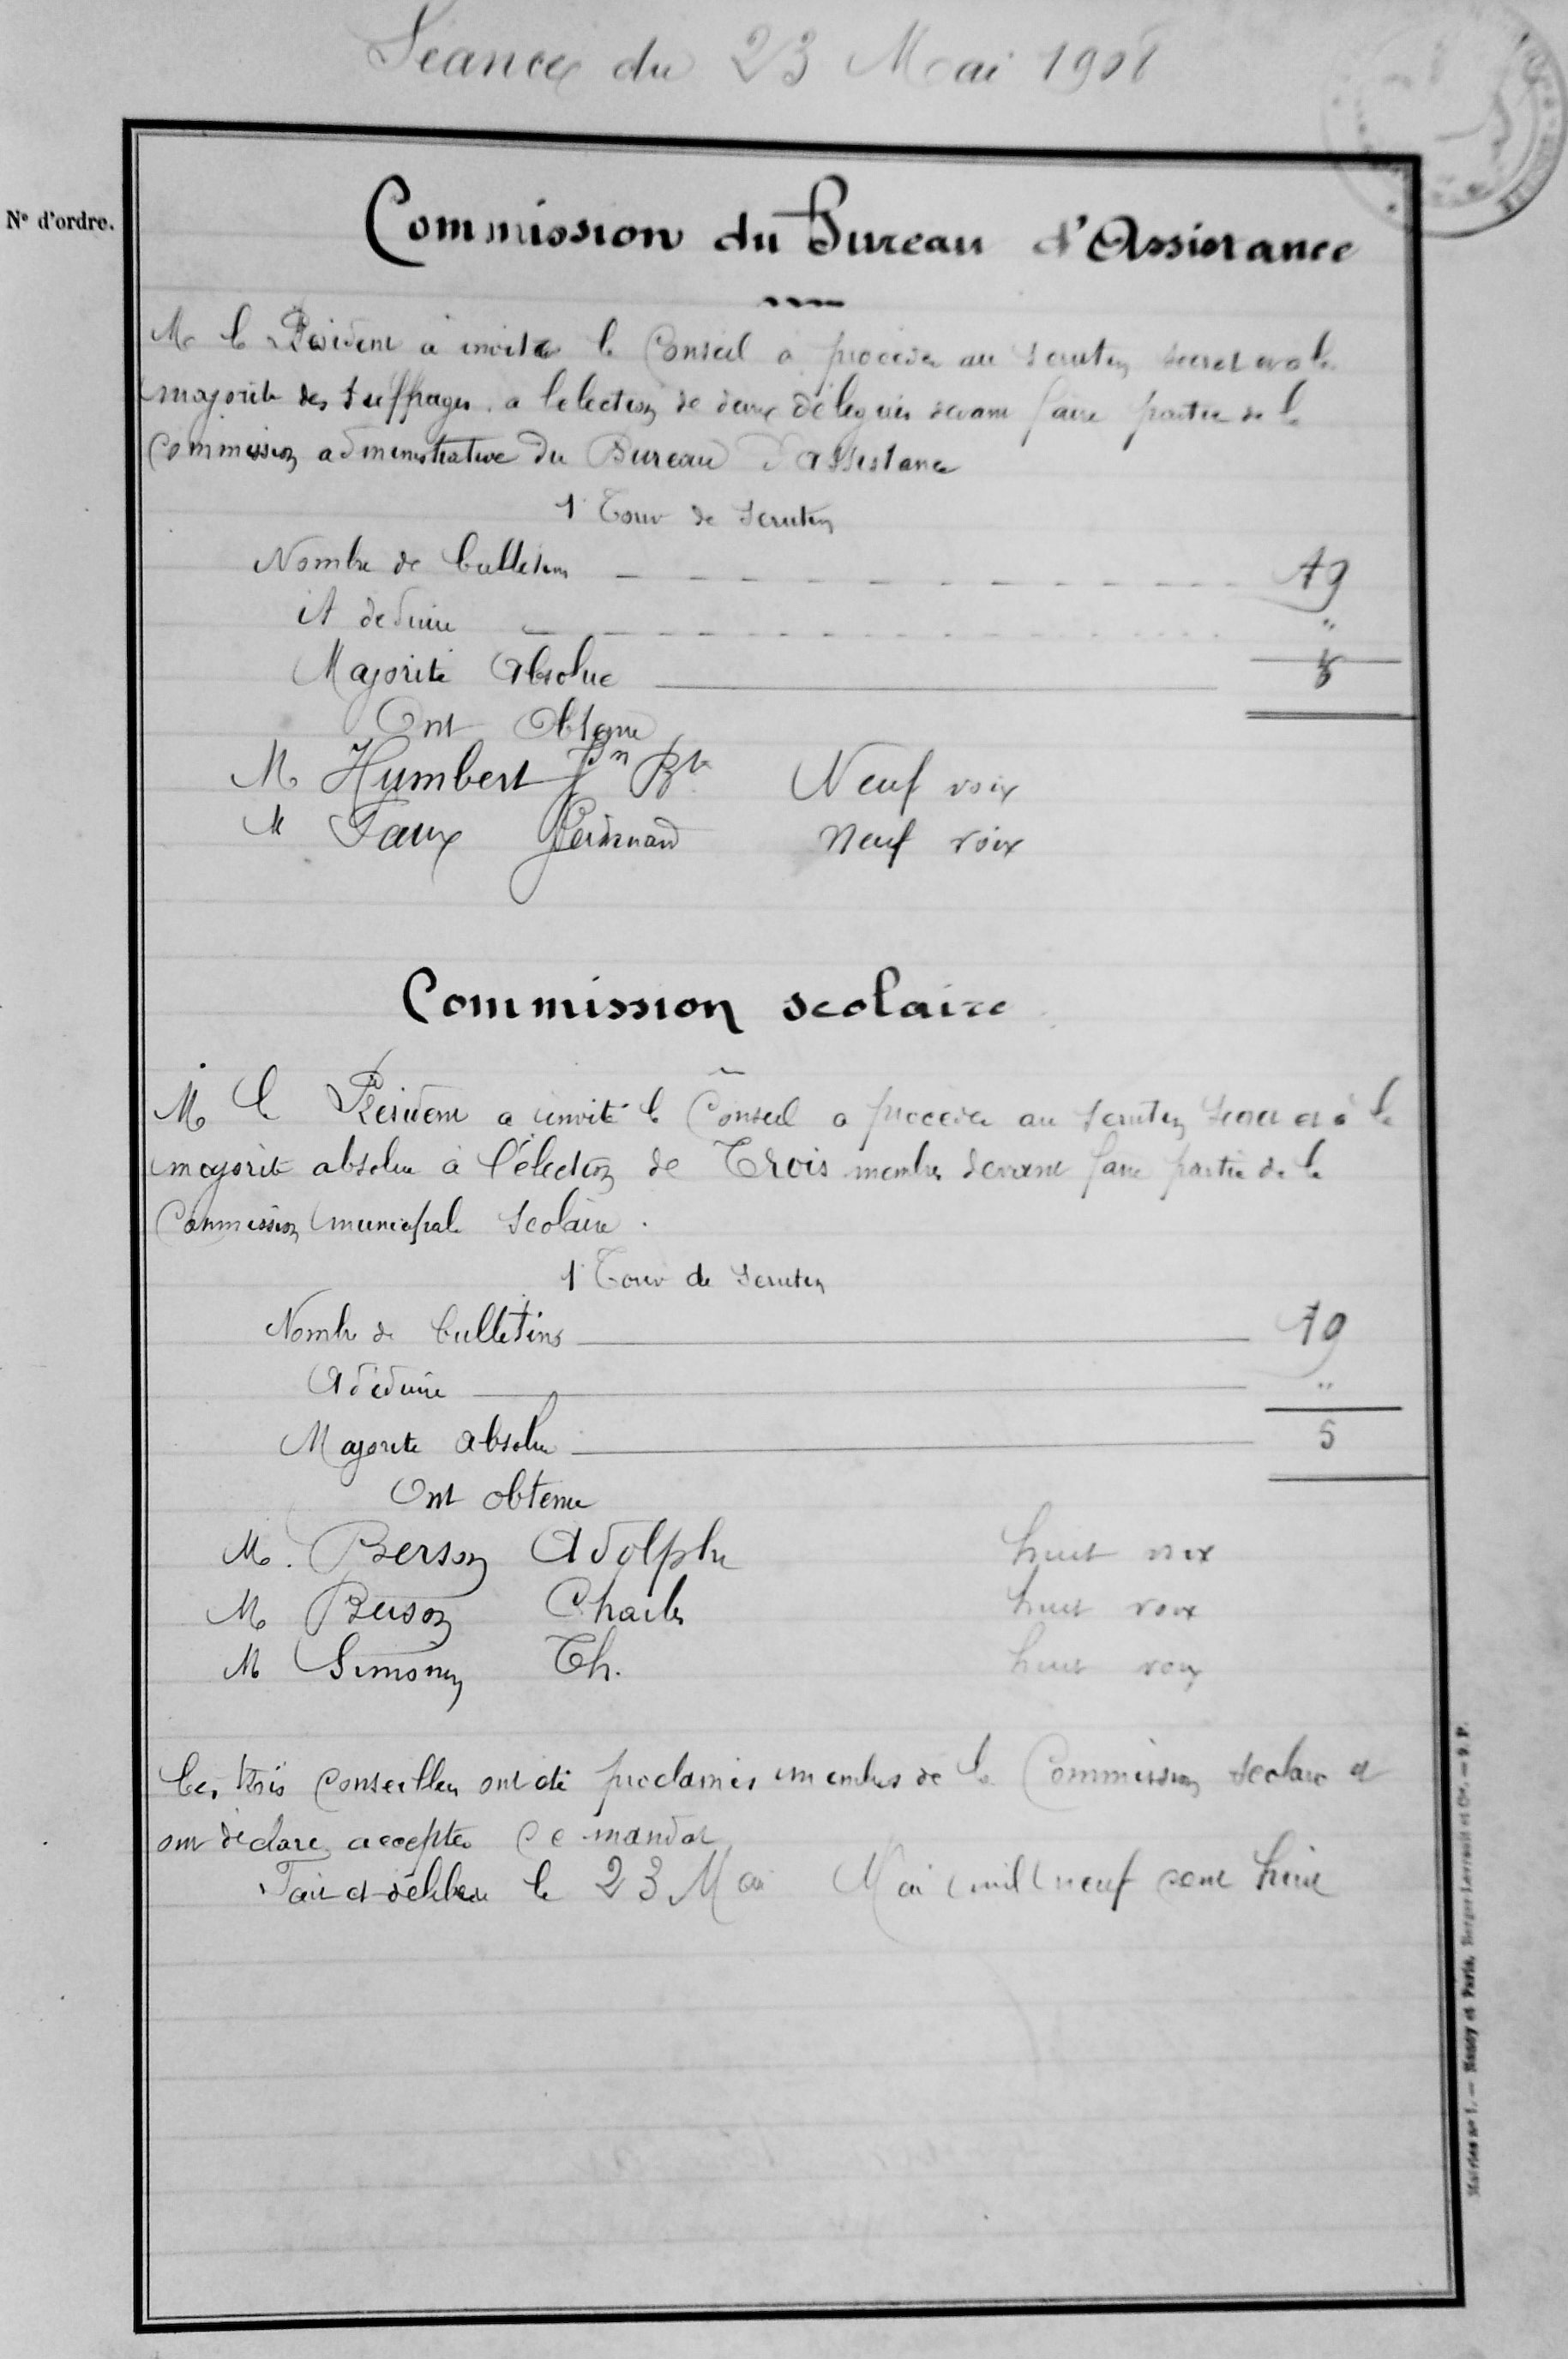 Séance du 23 Mai 1908
N° d'ordre.
Commission du Bureau d'Assistance
M le Président a invité le Conseil à procéder au scrutin secret et à la
majorité des suffrages a l'election de deux délégués devant faire partie de la
Commission administrative du Bureau d'assistance
1 Tour de Scrutin
Nombre de bulletins 9
A deduire "
Majorité Absolue 5
Ont Obtenu
M Humbert Jn Bte Neuf voix
M Faux Ferdinand Neuf voix
Commission scolaire
M le Président a invité le Conseil a procéder au scrutin secret et à la
majorité absolue à l'élection de Trois membres devant faire partie de la
Commission municipale Scolaire.
1 Tour de Scrutin
Nombre de bulletins 9
A déduire "
Majorité absolue 5
Ont obtenu
M. Berson Adolphe huit voix
M Berson Charles huit voix
M Simonin Th. huit voix
Ces trois conseillers ont été proclamés membres de la Commission scolaire et
ont déclaré accepter ce mandat
Fait et délibéré le 23 Mai Mai mil neuf cent huit
Mairies n° 1. — Nancy et Paris, Berger-Levrault et Cie. — 9. P.